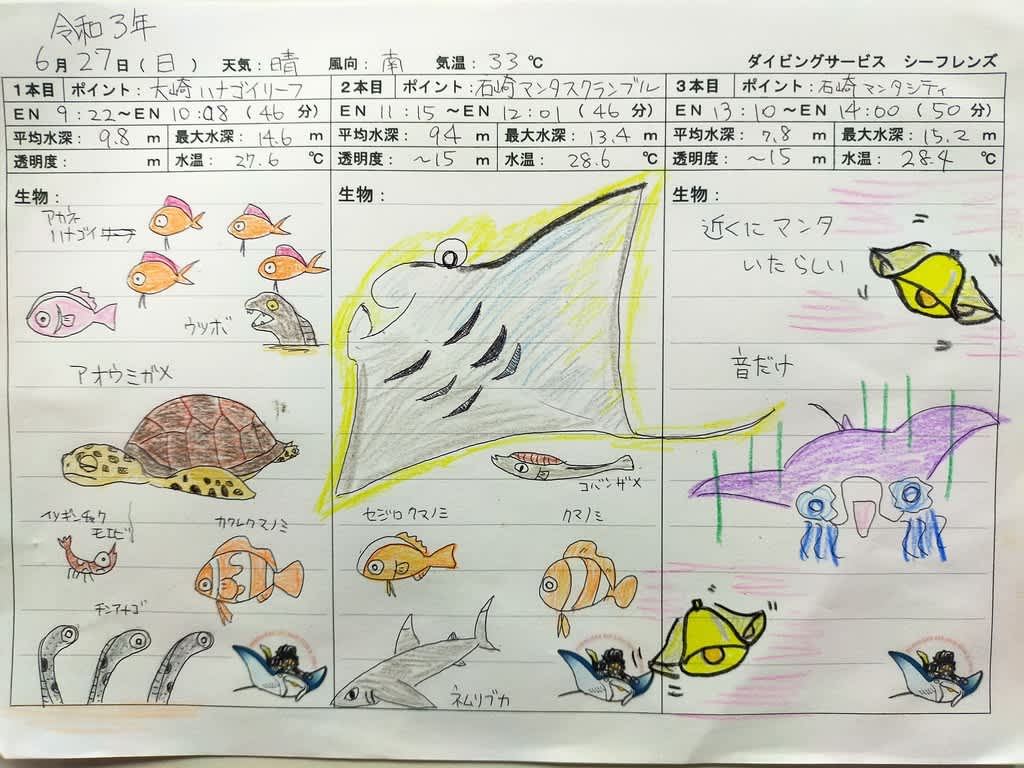 令和3年
6月27日(日) 天気:晴 風向:南 気温:33℃ ダイビングサービス シーフレンズ
1本目 ポイント:大崎ハナゴイリーフ
EN 9:22～EN 10:08 (46分)
平均水深: 9.8 m 最大水深: 14.6 m
透明度: m 水温: 27.6 ℃
生物:
アカネ
ハナゴイ
ウツボ
アオウミガメ
イソギンチャク
モエビ
カクレクマノミ
チンアナゴ
2本目 ポイント:石崎マンタスクランブル
EN 11:15～EN 12:01 (46分)
平均水深: 9.4 m 最大水深: 13.4 m
透明度: ～15 m 水温: 28.6 ℃
生物:
コバンザメ
セジロクマノミ
クマノミ
ネムリブカ
3本目 ポイント:石崎マンタシティ
EN 13:10～EN 14:00 (50分)
平均水深: 7.8 m 最大水深: 15.2 m
透明度: ～15 m 水温: 28.4 ℃
生物:
近くにマンタ
いたらしい
音だけ